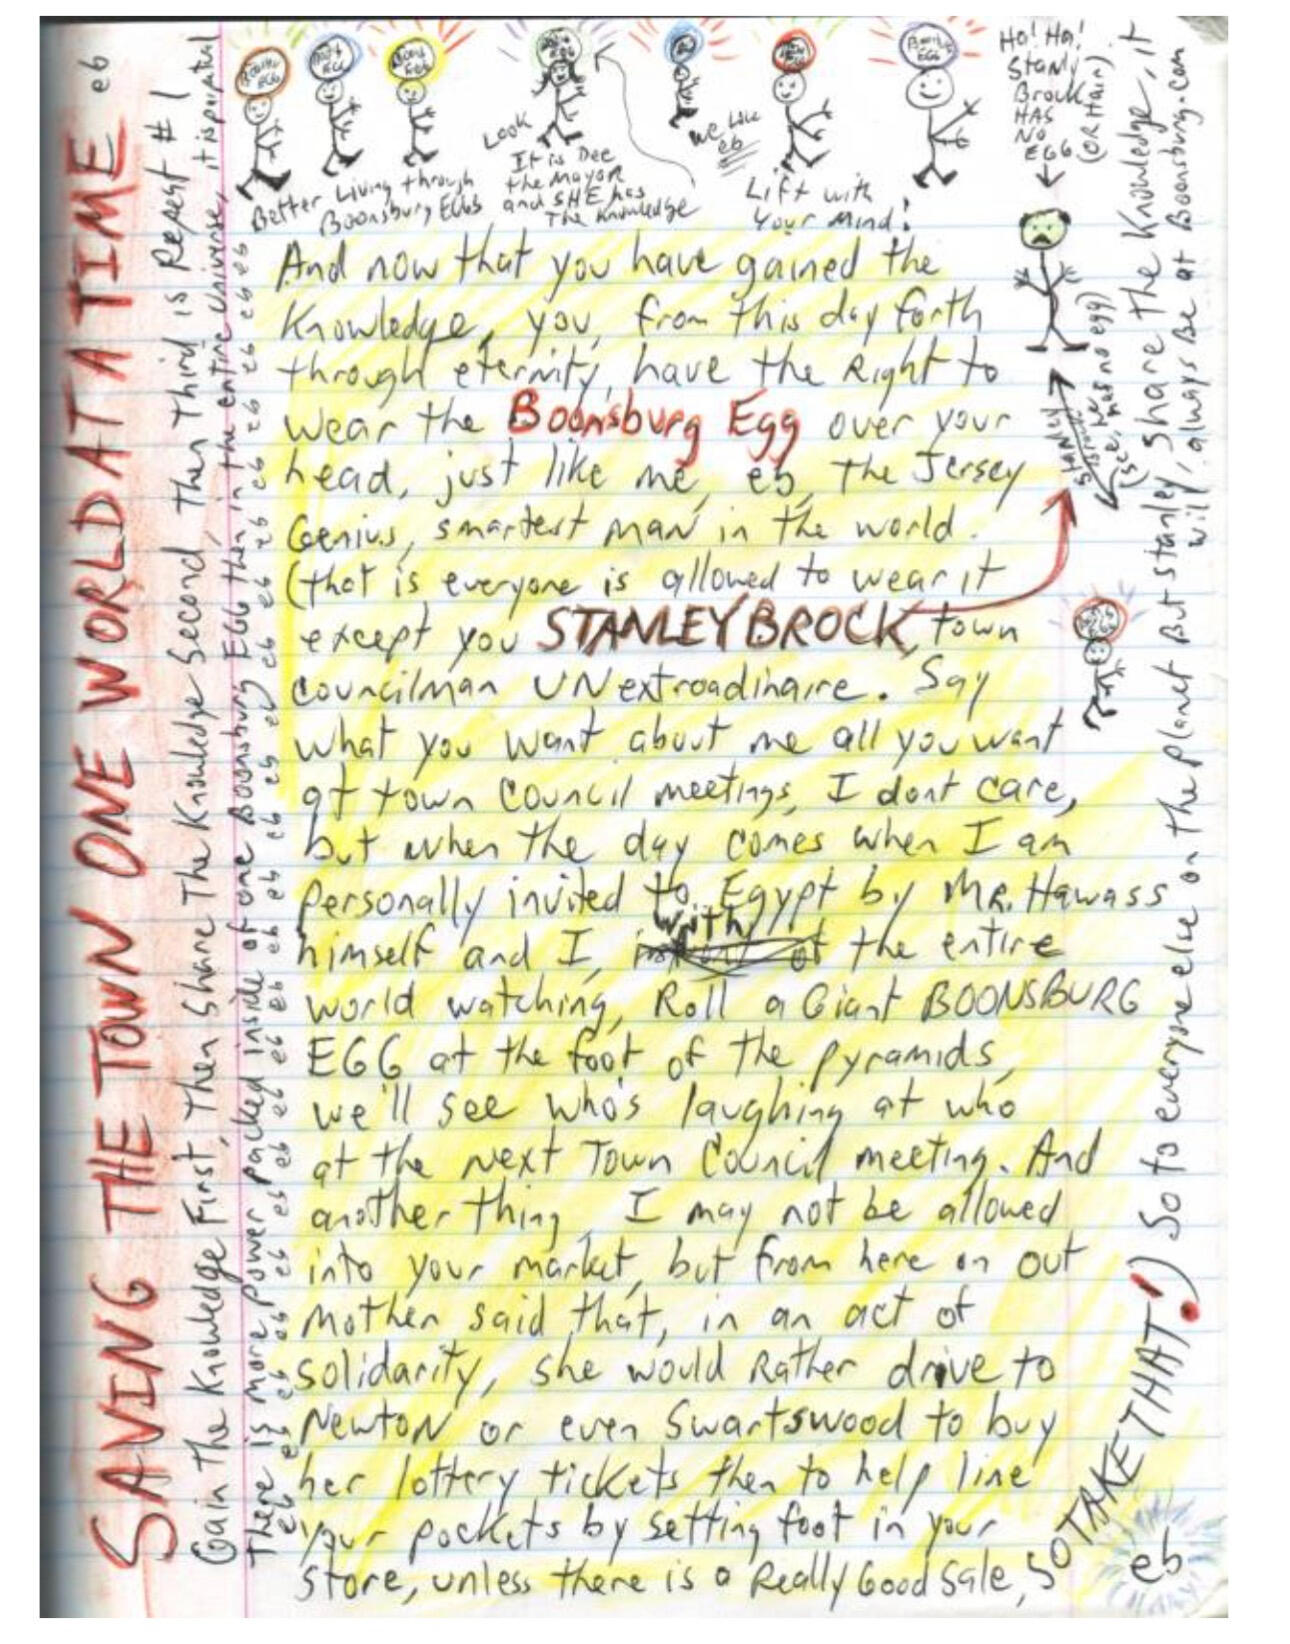 SAVING THE TOWN ONE WORLD AT A TIME
eb
Gain The Knowledge First, Then Share The Knowledge Second, Then Third is Repeat # 1
There is more power packed inside of one Boonsburg EGG then in the entire universe, it is
eb eb eb eb eb eb eb eb eb eb eb eb eb eb eb eb eb eb eb eb eb
Boonsburg
EGG
Look
It is Dee
the Mayor
and SHE has
The Knowledge
Better Living through
Boonsburg EGGS
We Like
eb
Lift with
Your Mind!
Ho! Ha!
Stanly
Brock
HAS
NO
EGG
(OR Hair)
And now that you have gained the
Knowledge, you, from this day forth
through eternity, have the Right to
wear the Boonsburg Egg over your
head, just like me, eb, The Jersey
Genius, smartest man in the world.
(that is everyone is allowed to wear it
except you STANLEY BROCK, town
councilman UNextroadinaire. Say
what you want about me all you want
at town Council meetings, I dont care,
but when the day comes when I am
personally invited to Egypt by MR. Hawass
himself and I, with the entire
world watching, Roll a Giant BOONSBURG
EGG at the foot of the pyramids,
we'll see who's laughing at who
at the next Town Council meeting. And
another thing, I may not be allowed
into your market, but from here on out
Mother said that, in an act of
solidarity, she would Rather drive to
Newton or even Swartswood to buy
her lottery tickets then to help line
your pockets by setting foot in your
store, unless there is a Really Good Sale, SO TAKE THAT!)
STANLEY
(see, he has no egg)
So to everyone else on the planet But stanley, share the Knowledge, it
will always Be at Boonsburg.com
eb